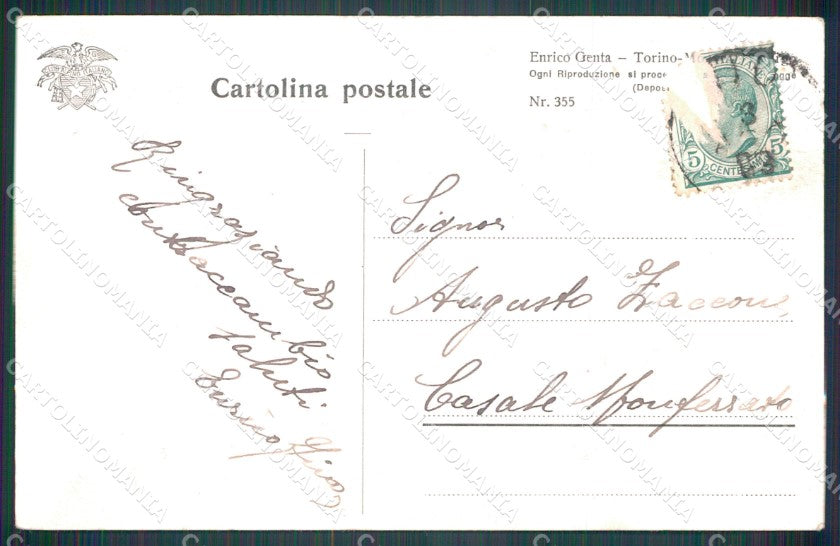 Cartolina postale
Enrico Genta – Torino-M
Ogni Riproduzione si proce
(Depos
Nr. 355
5 CENTES 5
Ringraziando
contraccambio
saluti
Enrico
Signor
Augusto Zaccone
Casale Monferrato
CARTOLINOMANIA